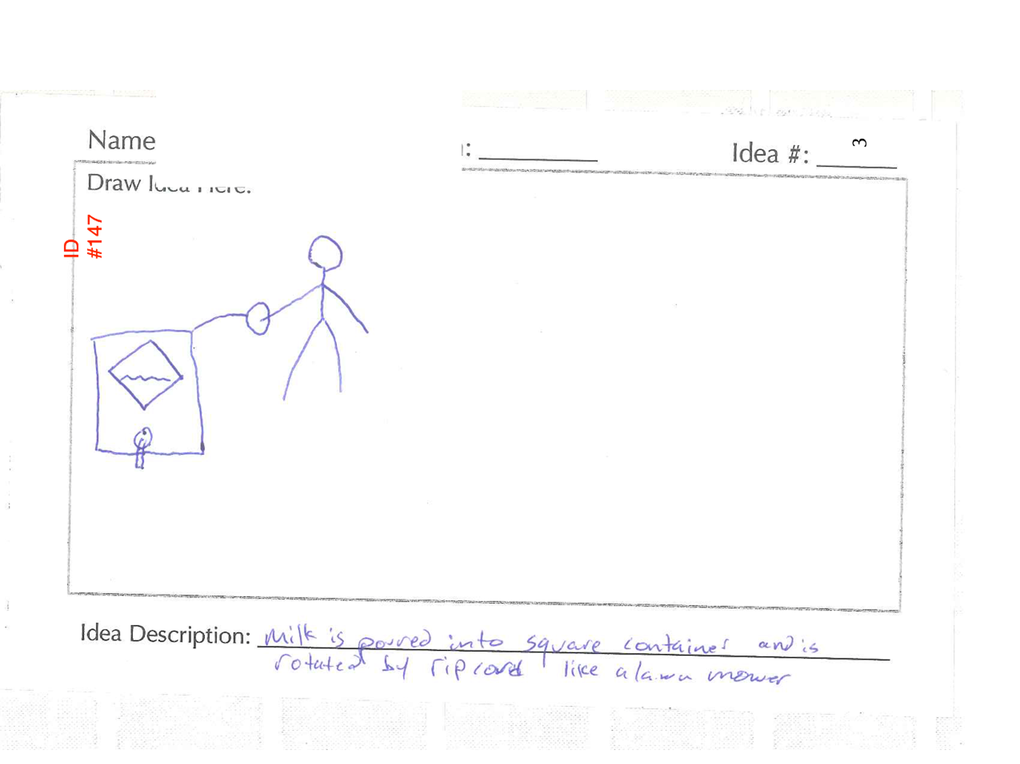 Name : Idea #: 3
Draw Idea Here:
ID
#147
Idea Description: Milk is poured into square container and is
rotated by ripcord like a lawn mower